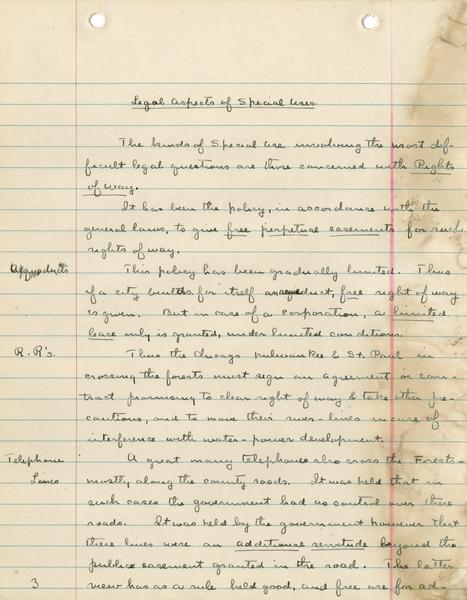 Legal Aspects of Special Uses.
The kinds of Special Use involving the most dif-
ficult legal questions are those concerned with Rights
of way.
It has been the policy, in accordance with the
general laws, to give free perpetual easements for such
rights of way.
Aqueducts This policy has been gradually limited. Thus
if a city builds for itself an aqueduct, free right of way
is given. But in case of a corporation, a limited
lease only is granted, under limited conditions.
R. R's. Thus the Chicago Milwaukee & St. Paul in
crossing the forests must sign an agreement or con-
tract promising to clear right of way & take other pre-
cautions, and to move their lines in case of
interference with water-power development.
Telephone A great many telephones also cross the Forests-
Lines mostly, along the county roads. It was held that in
such cases the government had no control over these
roads. It was held by the government however that
these lines were an additional servitude beyond the
public easement granted in the road. The latter
3 view has as a rule held good, and free use for ad-